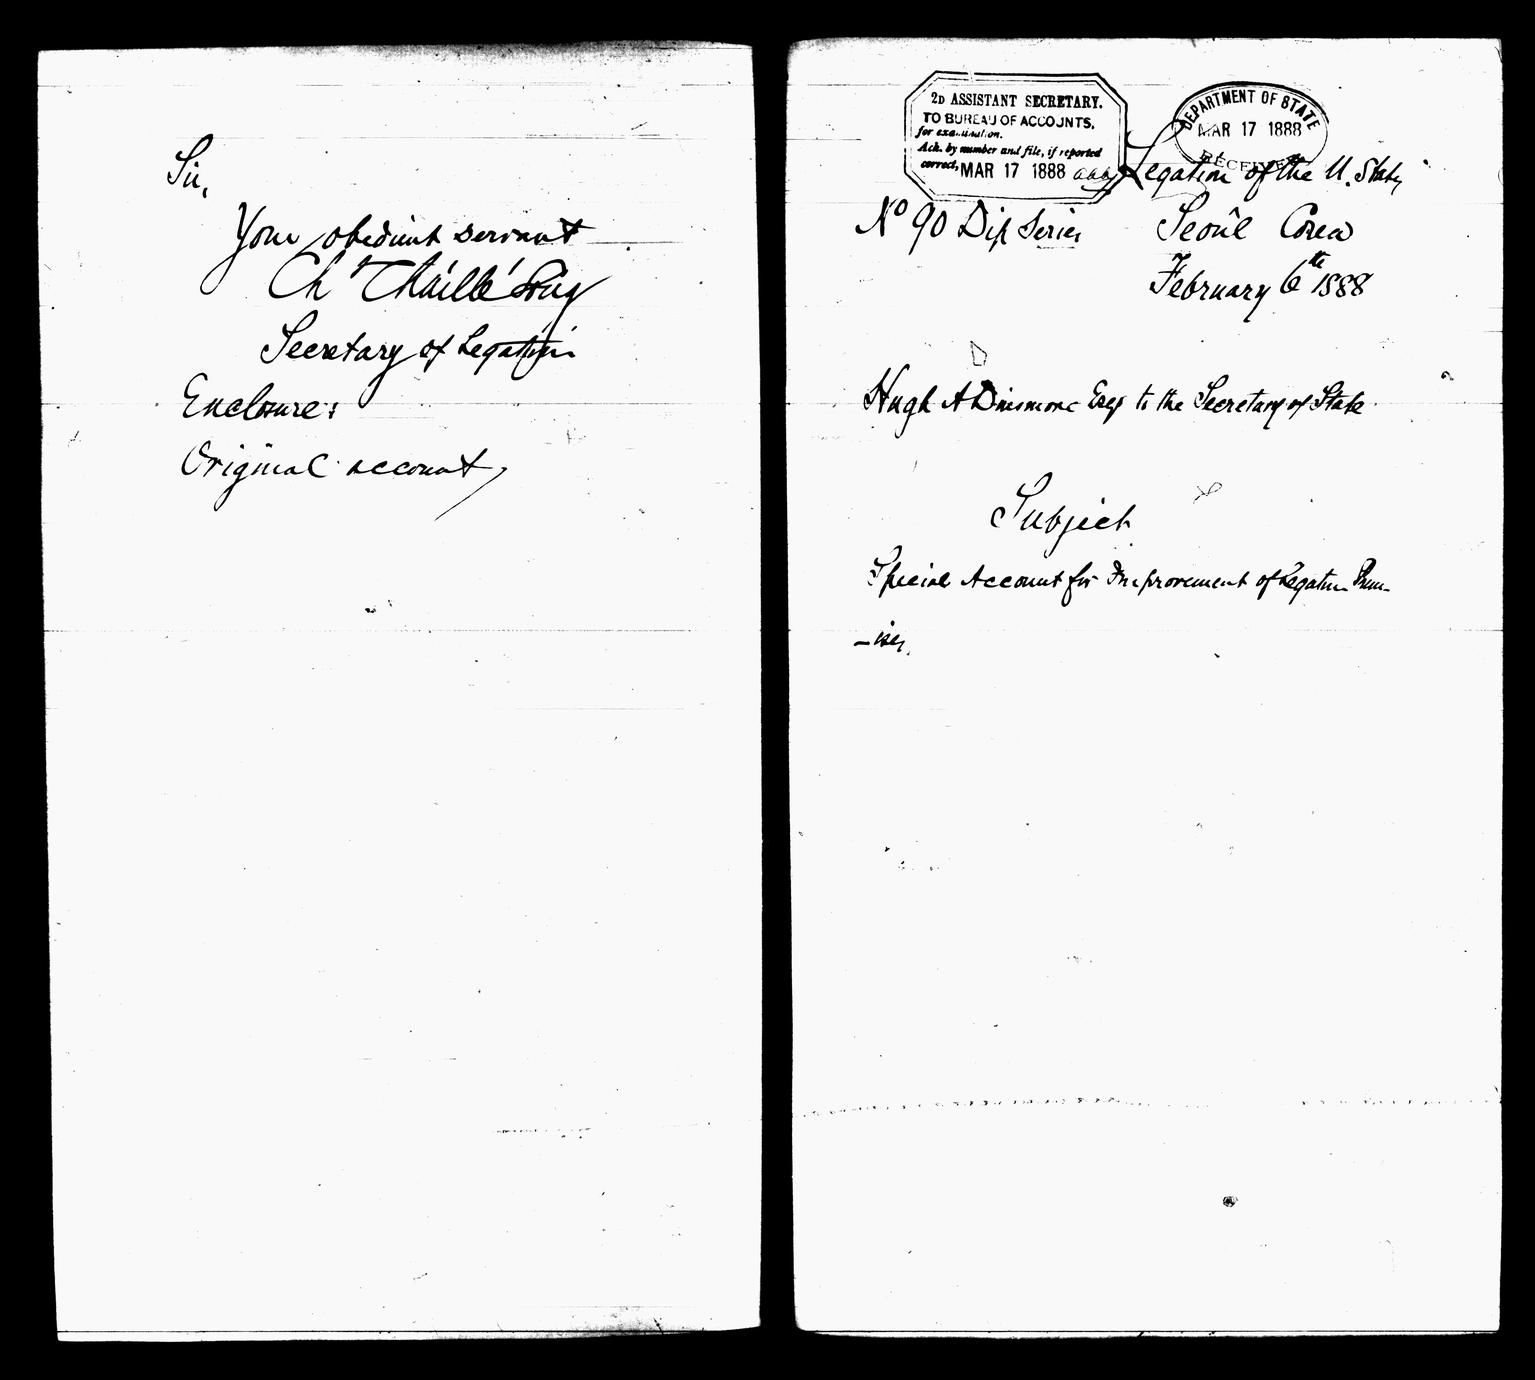 Sir,
Your obedient servant
Ch Chaillé Long
Secretary of Legation
Enclosure:
Original account
2D ASSISTANT SECRETARY.
TO BUREAU OF ACCOUNTS,
for examination.
Ack. by number and file, if reported
correct, MAR 17 1888
DEPARTMENT OF STATE
MAR 17 1888
RECEIVED
Legation of the U. States
No 90 Dip Series Seoul Corea
February 6th 1888
Hugh A Dinsmore Esq to the Secretary of State
Subject
Special Account for Improvement of Legation Prem-
-ises,